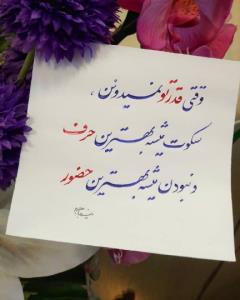 وقتی قدرتو نمیدونن ،
سکوت میشه بهترین حرف
و نبودن میشه بهترین حضور